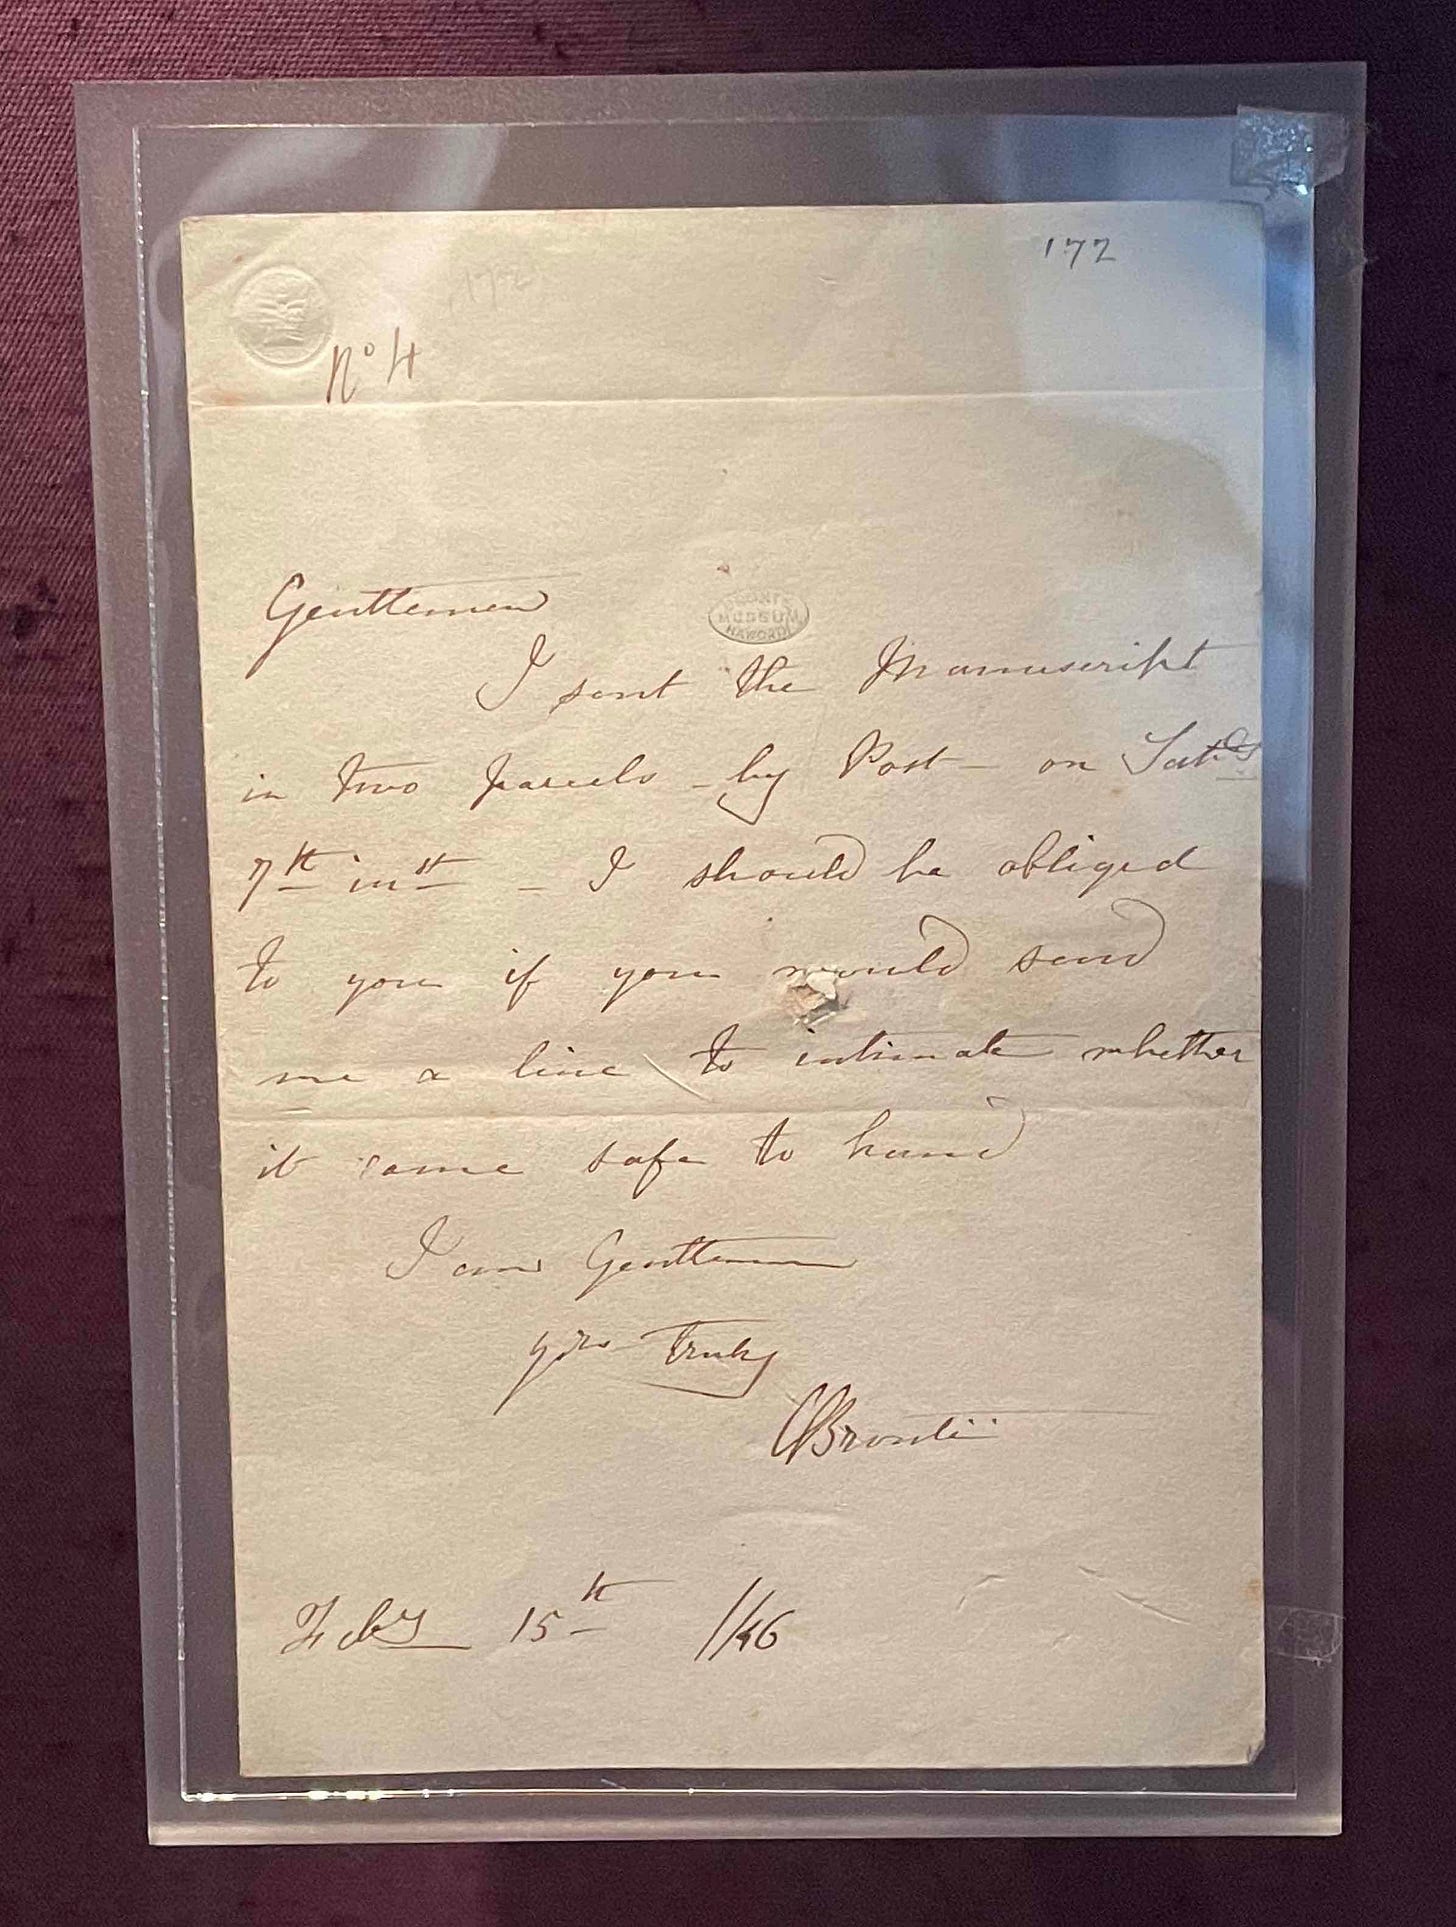 172
No 4
Gentlemen
MUSEUM
HAWORTH
I sent the Manuscript
in two parcels - by Post - on Satdy
7th inst - I should be obliged
to you if you would send
me a line to intimate whether
it came safe to hand
I am Gentlemen
yrs truly
CBrontë
Feby 15th /46